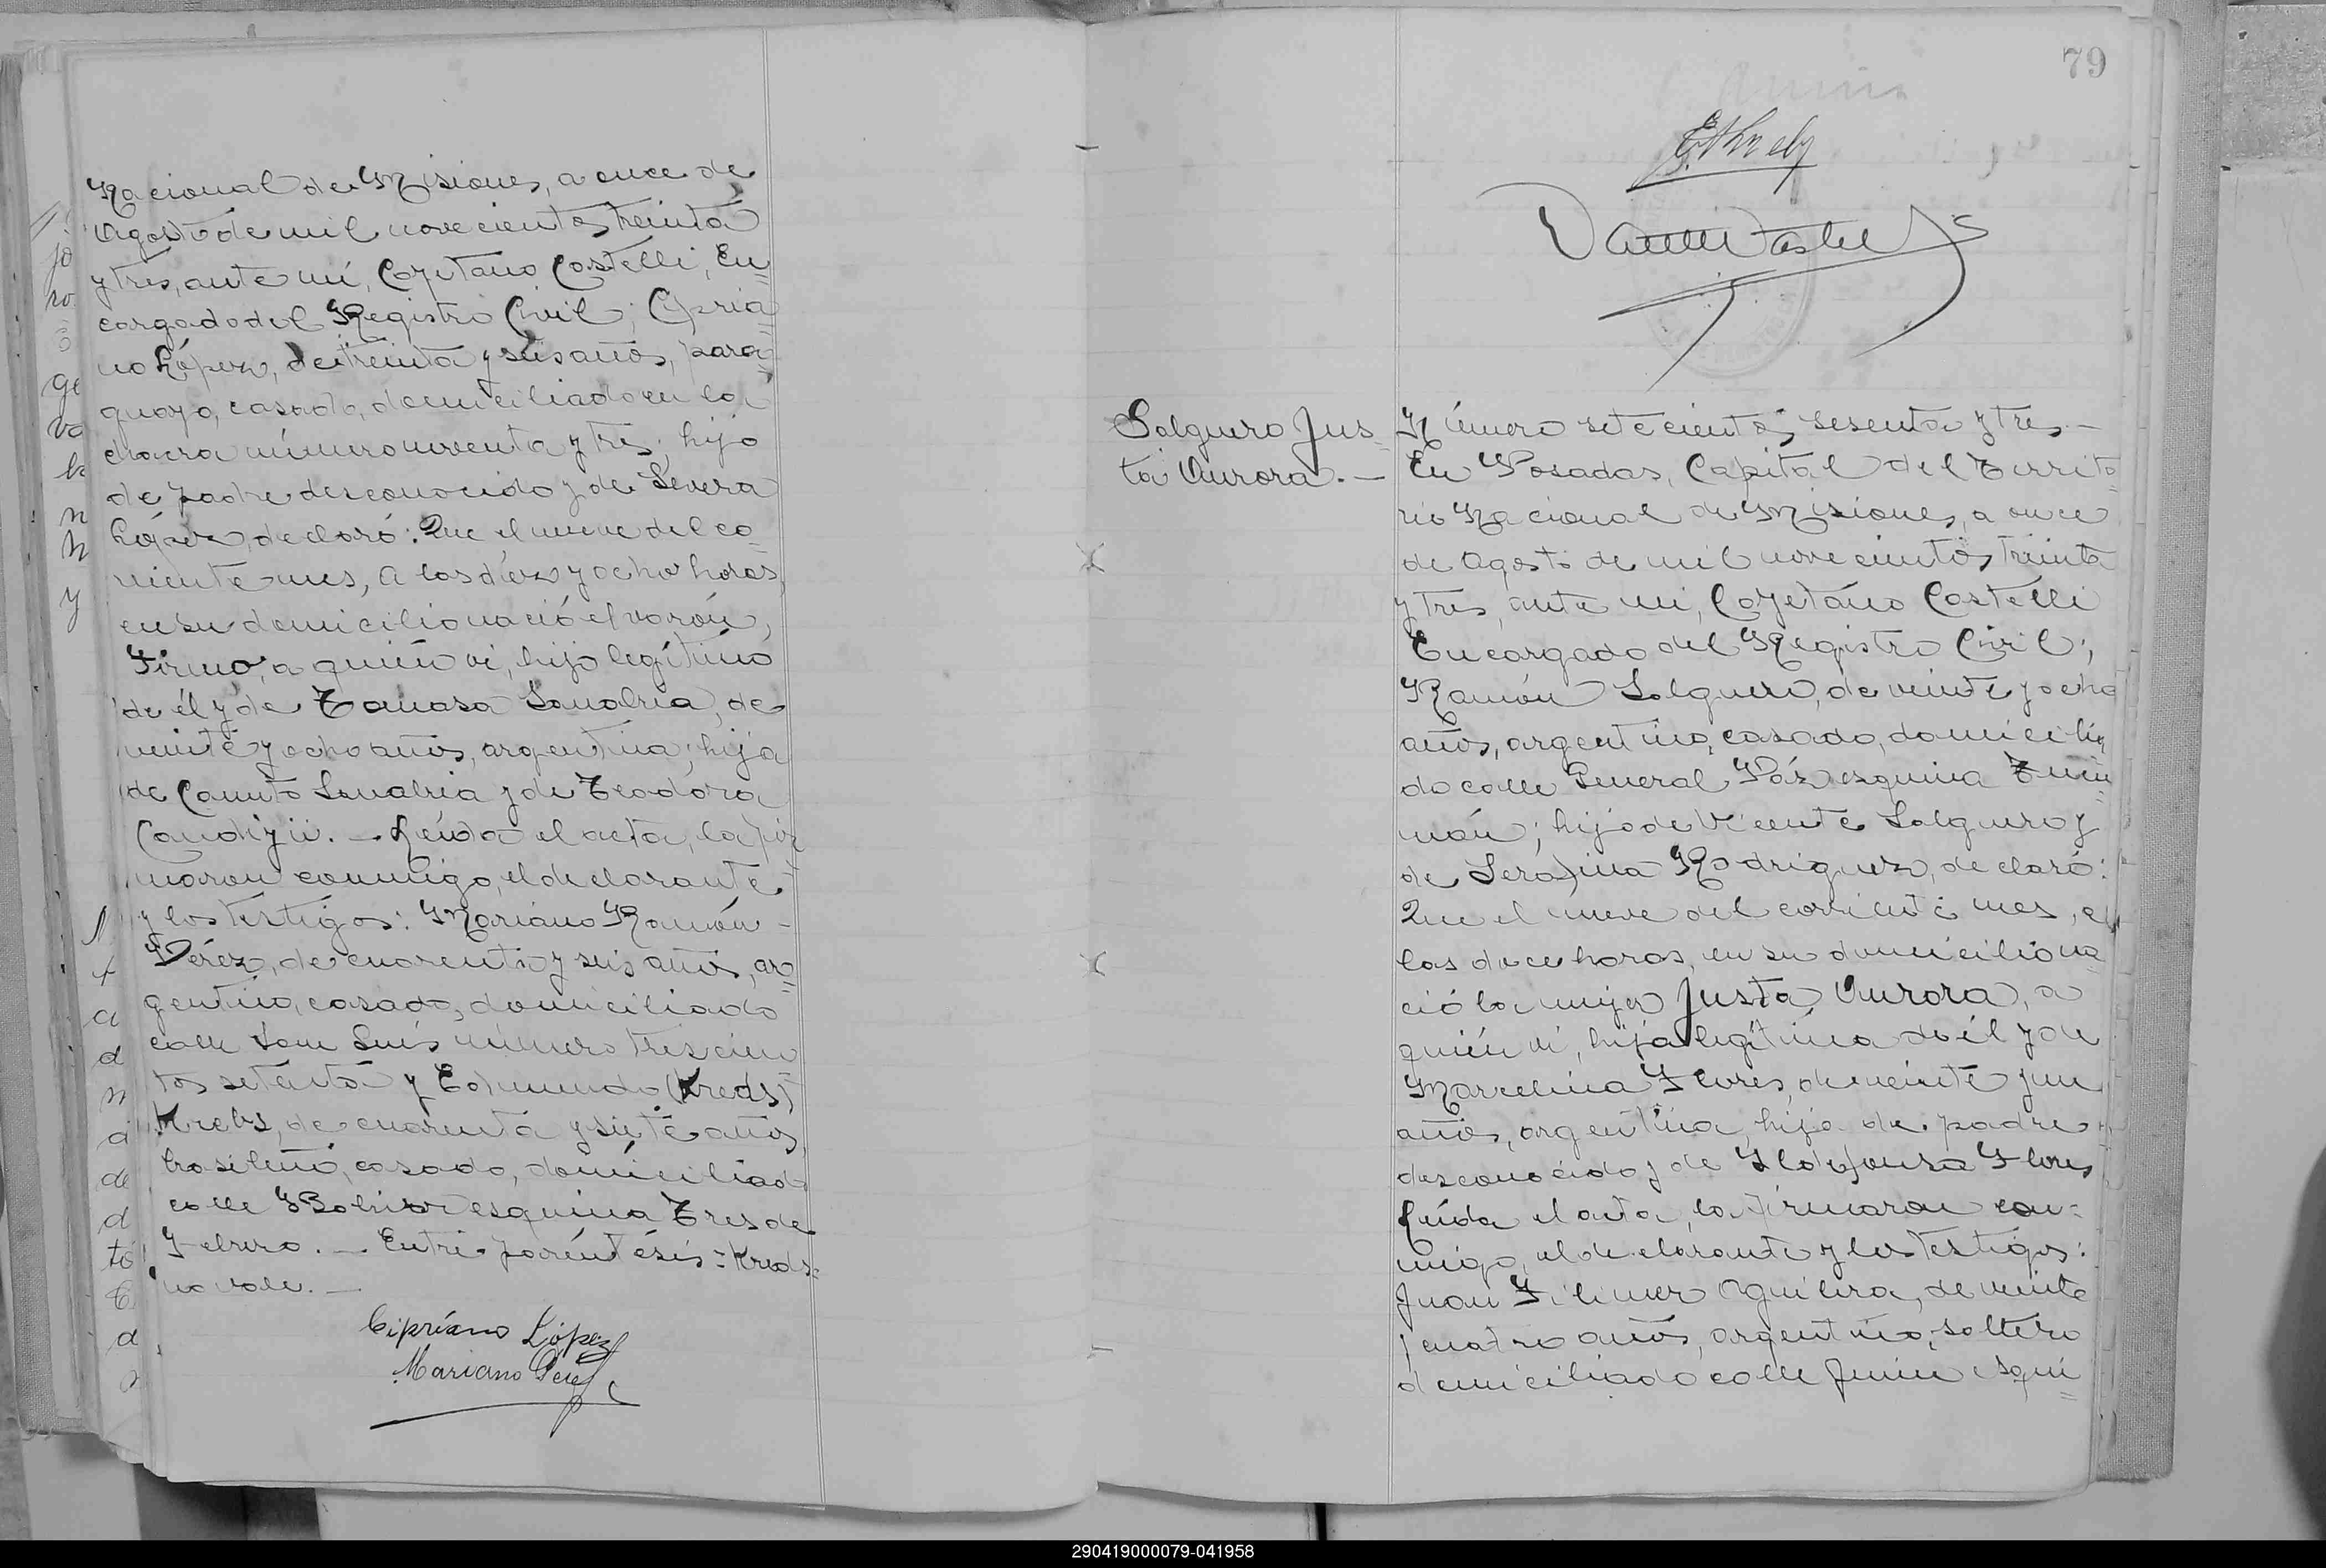 Nacional de Misiones, a once de
Agosto de mil novecientos treinta
y tres, ante mí, Cayetano Castelli, En=
cargado del Registro Civil; Cipria=
no López, de treinta y seis años, para=
guayo, casado, domiciliado en la
chacra número noventa y tres; hijo
de padre desconocido y de Severa
López, declaró: Que el nueve del co-
rriente mes, a las diez y ocho horas,
en su domicilio nació el varón,
Firmo, a quién ví, hijo legítimo
de él y de Tomasa Sanabria, de
veinte y ocho años, argentina; hija
de Canuto Sanabria y de Teodora
Leída el acta, la fir=
maron conmigo, el declarante
y los testigos: Mariano Ramón -
Pérez, de cuarenta y seis años, ar=
gentino, casado, domiciliado
calle San Luis número trescien
tos setenta y Edmundo (Kreds)
Krebs, de cuarenta y siete años,
brasileño, casado, domiciliado
calle Bolivar esquina Tres de
Febrero. — Entre paréntesis: Kreds:
no vale. —
Cipriano López
Mariano Pérez
79
Salguero Jus=
ta Aurora. —
Número setecientos sesenta y tres —
En Posadas, Capital del Territo=
rio Nacional de Misiones, a once
de Agosto de mil novecientos treinta
y tres, ante mí, Cayetano Castelli
Encargado del Registro Civil;
Ramón Salguero, de veinte y ocho
años, argentino, casado, domicilia
do calle General Páz esquina Tucu=
mán; hijo de Vicente Salguero y
de Serafina Rodriguez, declaró:
Que el nueve del corriente mes, a
las doce horas, en su domicilio na=
ció la mujer Justa Aurora, a
quién ví, hija legítima de él y de
Marcelina Flores, de veinte y un
años, argentina, hija de padre
desconocido y de Ildefonsa Flores
Leída el acta, la firmaron con=
migo, el declarante y los testigos:
Juan Aguilera, de veinte
y cuatro años, argentino, soltero
domiciliado calle Junín esqui=
290419000079-041958